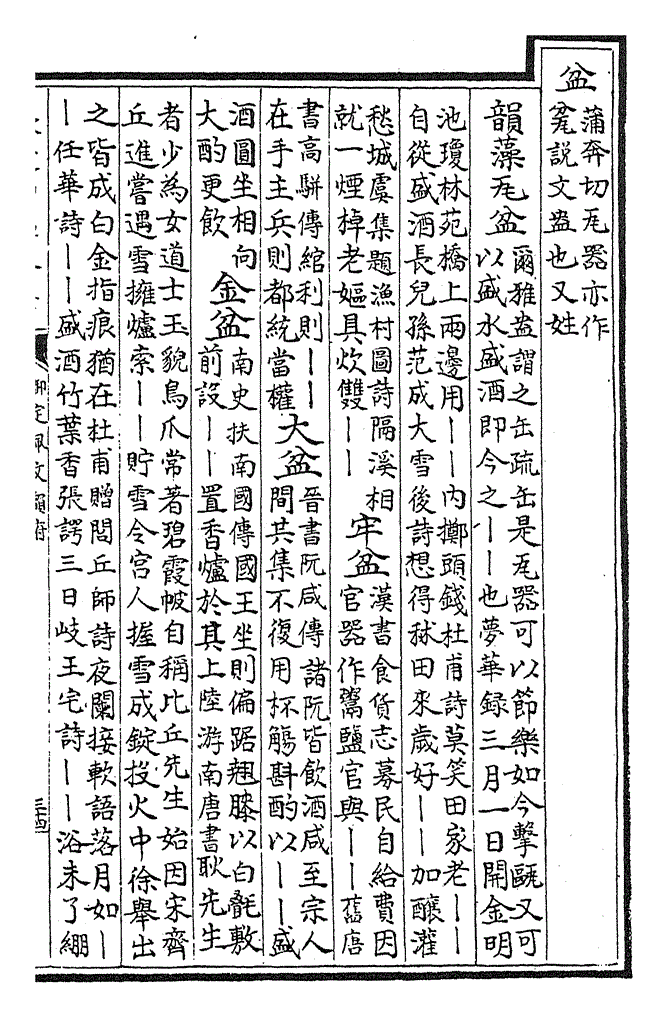 盆
蒲奔切瓦器亦作
瓫說文盎也又姓
韻藻瓦盆
爾雅盎謂之缶疏缶是瓦器可以節樂如今擊甌又可
以盛水盛酒即今之丨丨也夢華録三月一日開金明
池瓊林苑橋上兩邊用丨丨内擲頭錢杜甫詩莫笑田家老丨丨
自從盛酒長兒孫范成大雪後詩想得秫田來歲好丨丨加釀灌
愁城虞集題漁村圖詩隔溪相
就一煙棹老嫗具炊雙丨丨
牢盆
漢書食貨志募民自給費因
官器作鬻鹽官與丨丨舊唐
書高駢傳綰利則丨丨
在手主兵則都統當權
大盆
晉書阮咸傳諸阮皆飲酒咸至宗人
間共集不復用杯觴斟酌以丨丨盛
酒圓坐相向
大酌更飲
金盆
南史扶南國傳國王坐則偏踞翹膝以白㲲敷
前設丨丨置香爐於其上陸游南唐書耿先生
者少為女道士玉貌鳥爪常著碧霞帔自稱比丘先生始因宋齊
丘進嘗遇雪擁爐索丨丨貯雪令宫人握雪成錠投火中徐舉出
之皆成白金指痕猶在杜甫贈閭丘師詩夜闌接軟語落月如丨
丨任華詩丨丨盛酒竹葉香張諤三日岐王宅詩丨丨浴未了綳
御定佩文韻府